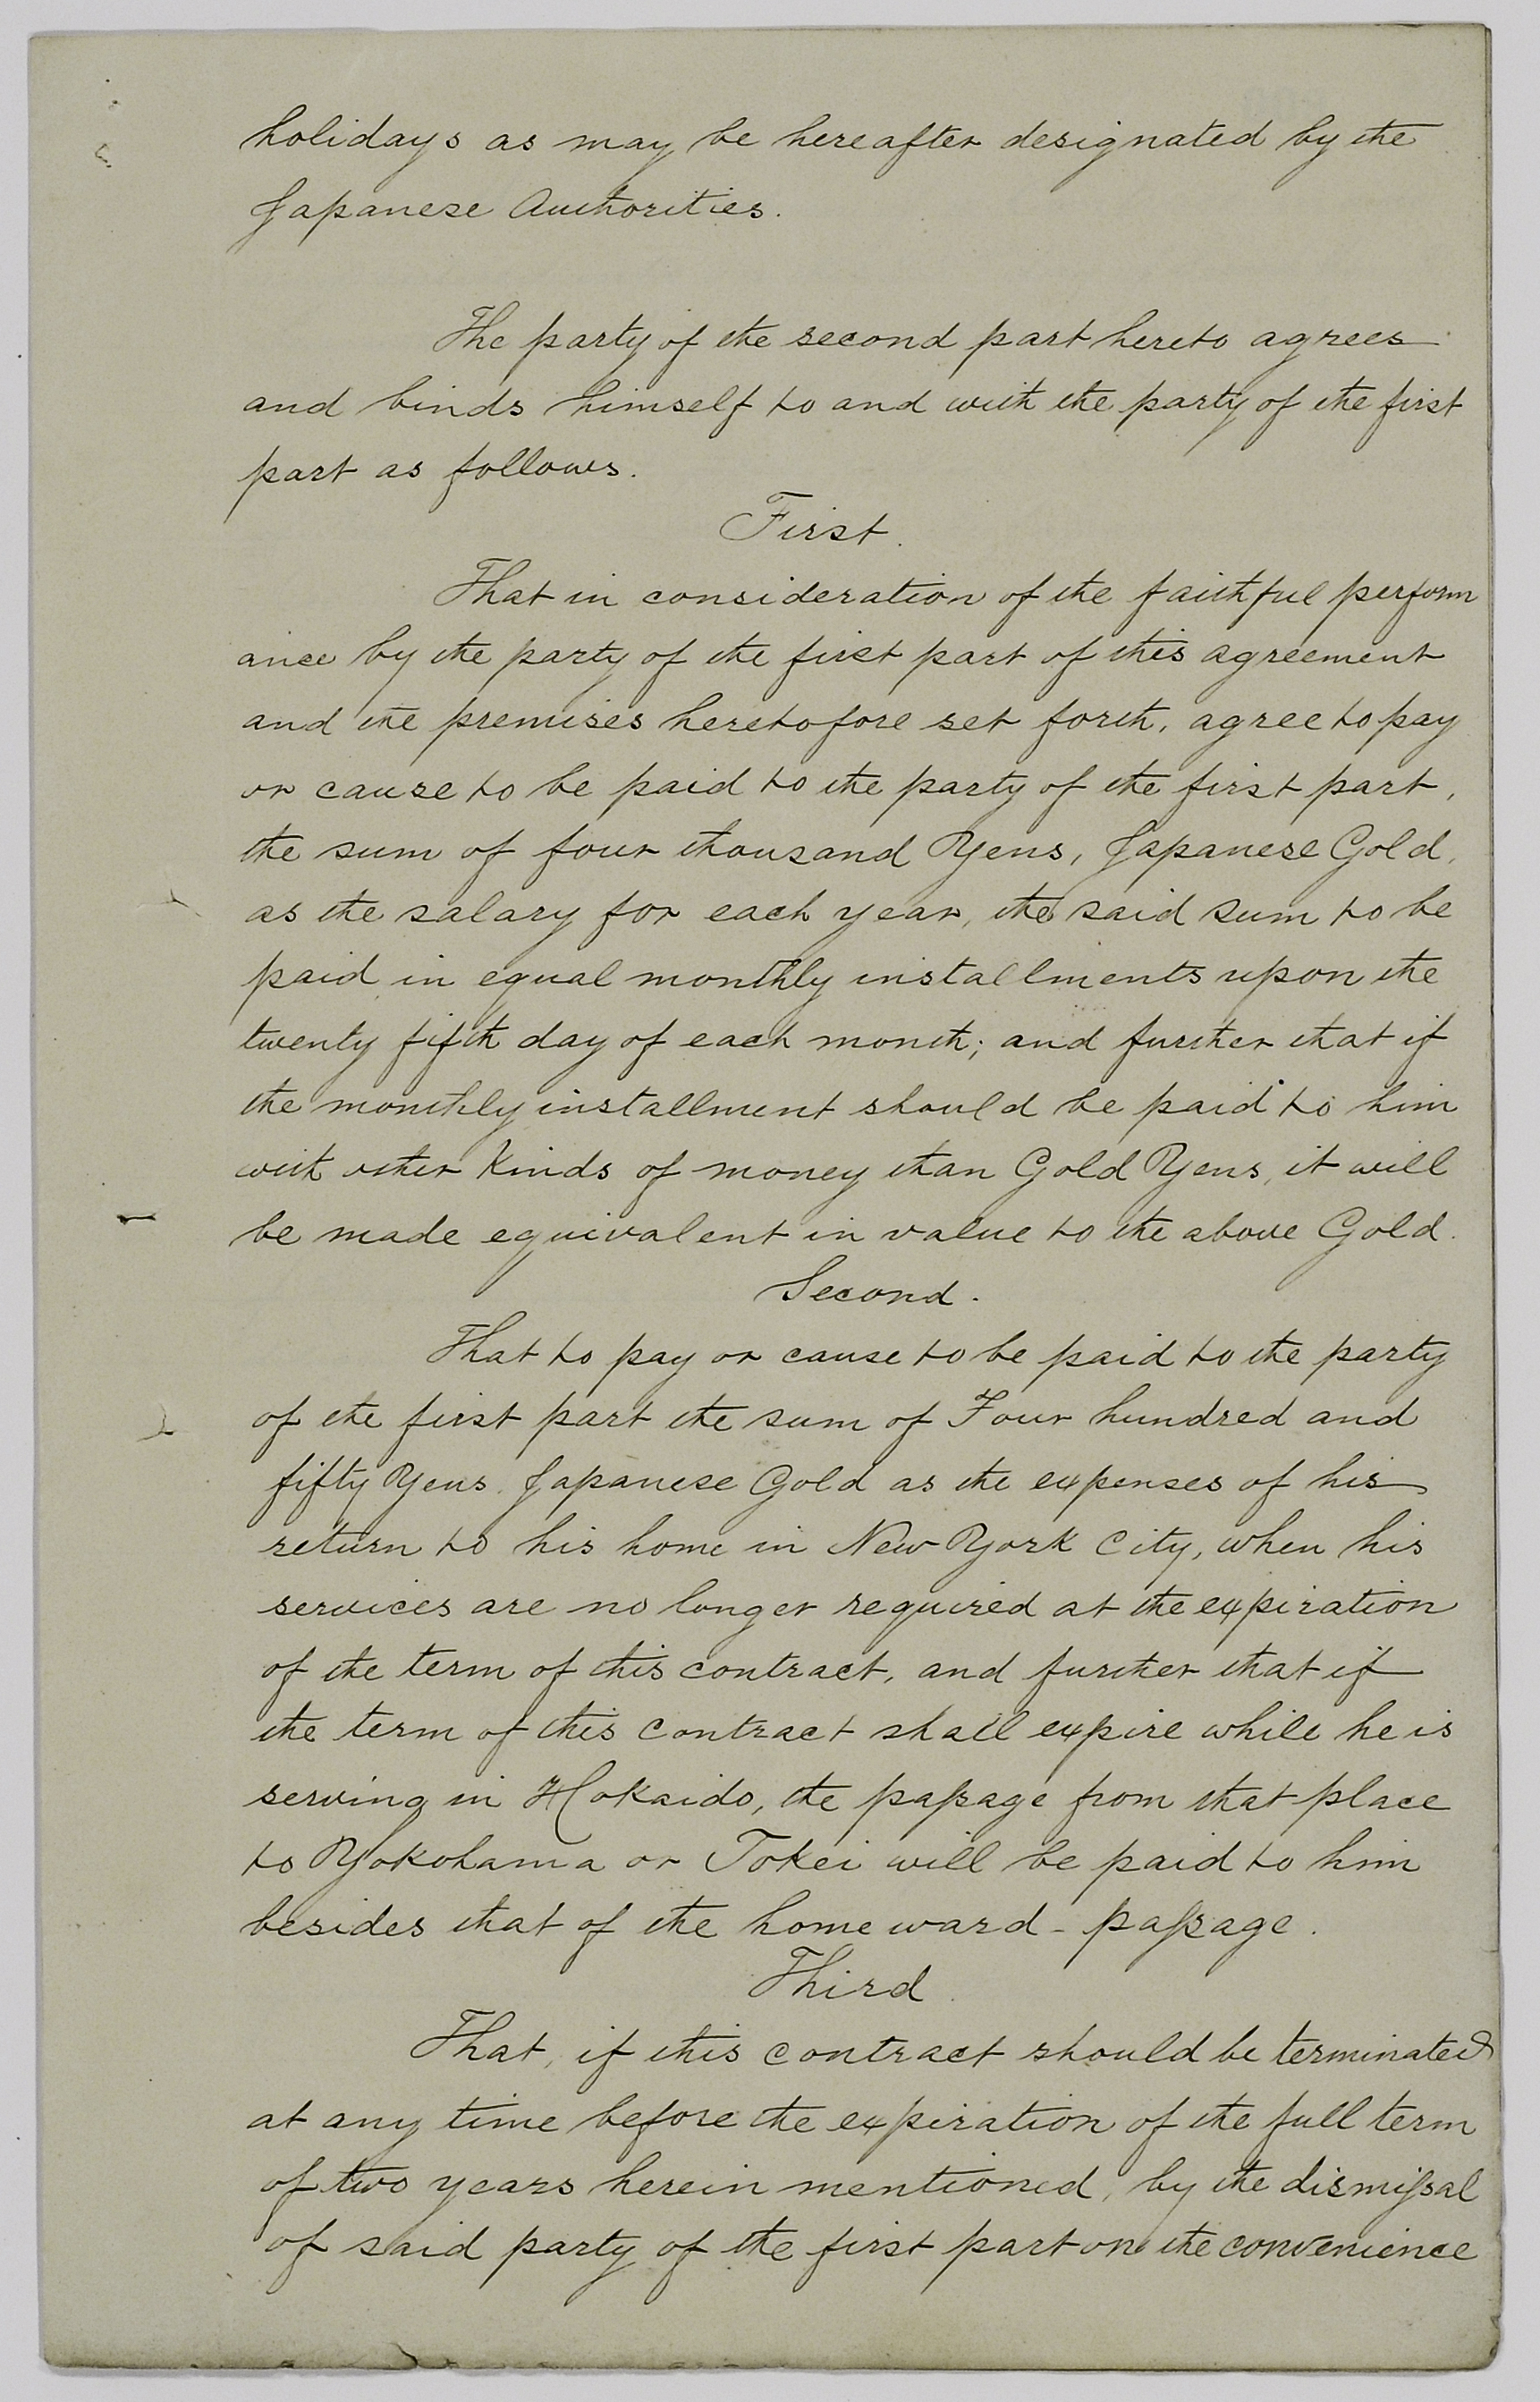 holidays as may be hereafter designated by the
Japanese Authorities.
The party of the second part hereto agrees
and binds himself to and with the party of the first
part as follows.
First.
That in consideration of the faithful perform
ance by the party of the first part of this agreement
and the premises heretofore set forth, agree to pay
or cause to be paid to the party of the first part,
the sum of four thousand Yens, Japanese Gold,
as the salary for each year, the said sum to be
paid in equal monthly installments upon the
twenty fifth day of each month; and further that if
the monthly installment should be paid to him
with other kinds of money than Gold Yens, it will
be made equivalent in value to the above Gold.
Second.
That to pay or cause to be paid to the party
of the first part the sum of Four hundred and
fifty Yens Japanese Gold as the expenses of his
return to his home in New York City, when his
services are no longer required at the expiration
of the term of this contract, and further that if
the term of this contract shall expire while he is
serving in Hokaido, the passage from that place
to Yokohama or Tokei will be paid to him
besides that of the home ward - passage.
Third.
That, if this contract should be terminated
at any time before the expiration of the full term
of two years herein mentioned, by the dismissal
of said party of the first part on the convenience